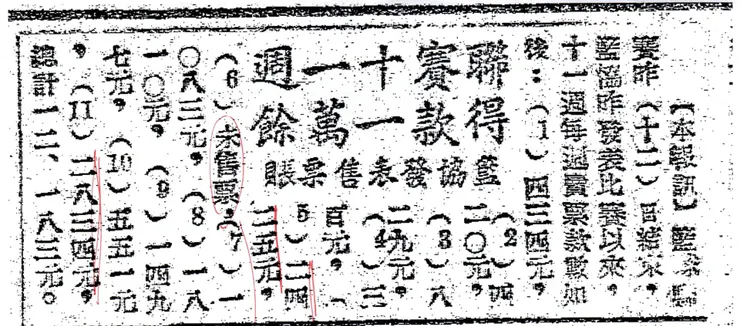 【本報訊】籃球聯
賽昨(十二)日結束,
籃協昨發表比賽以來,
十一週每週賣票款數如
後:(1)四三四元。
聯賽十一週
得款一萬餘
籃協發表售票賬
(2)四
二〇元,
(3)八
二九元。
(4)三
百元,(
5)二四
二五元,
(6)未售票,(7)一
〇八三元,(8)一八
一〇元,(9)一四九
七元,(10)五五一元
,(11)二八三四元,
總計一二、一八三元。